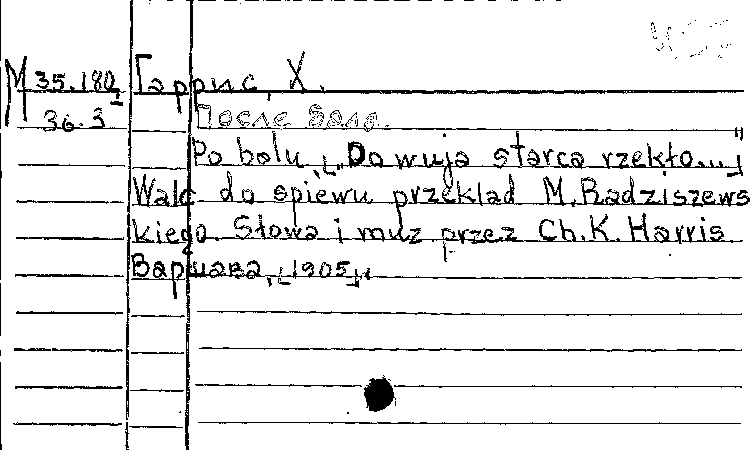 М 35.180 Гаррис, Х.
36.3 После бала.
Po bolu „Do wuja starca rzekło..."
Walc do spiewu przeklad M. Radziszews
kiego. Słowa i muz przez Ch. K. Harris
Варшава, [1905],